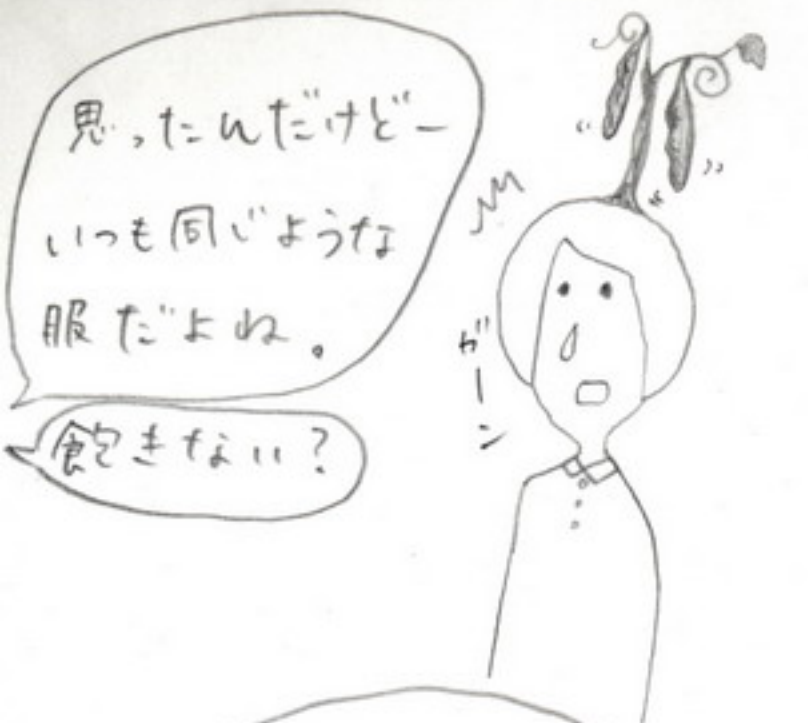 思ったんだけどー
いつも同じような
服だよね。
飽きない？
ガーン